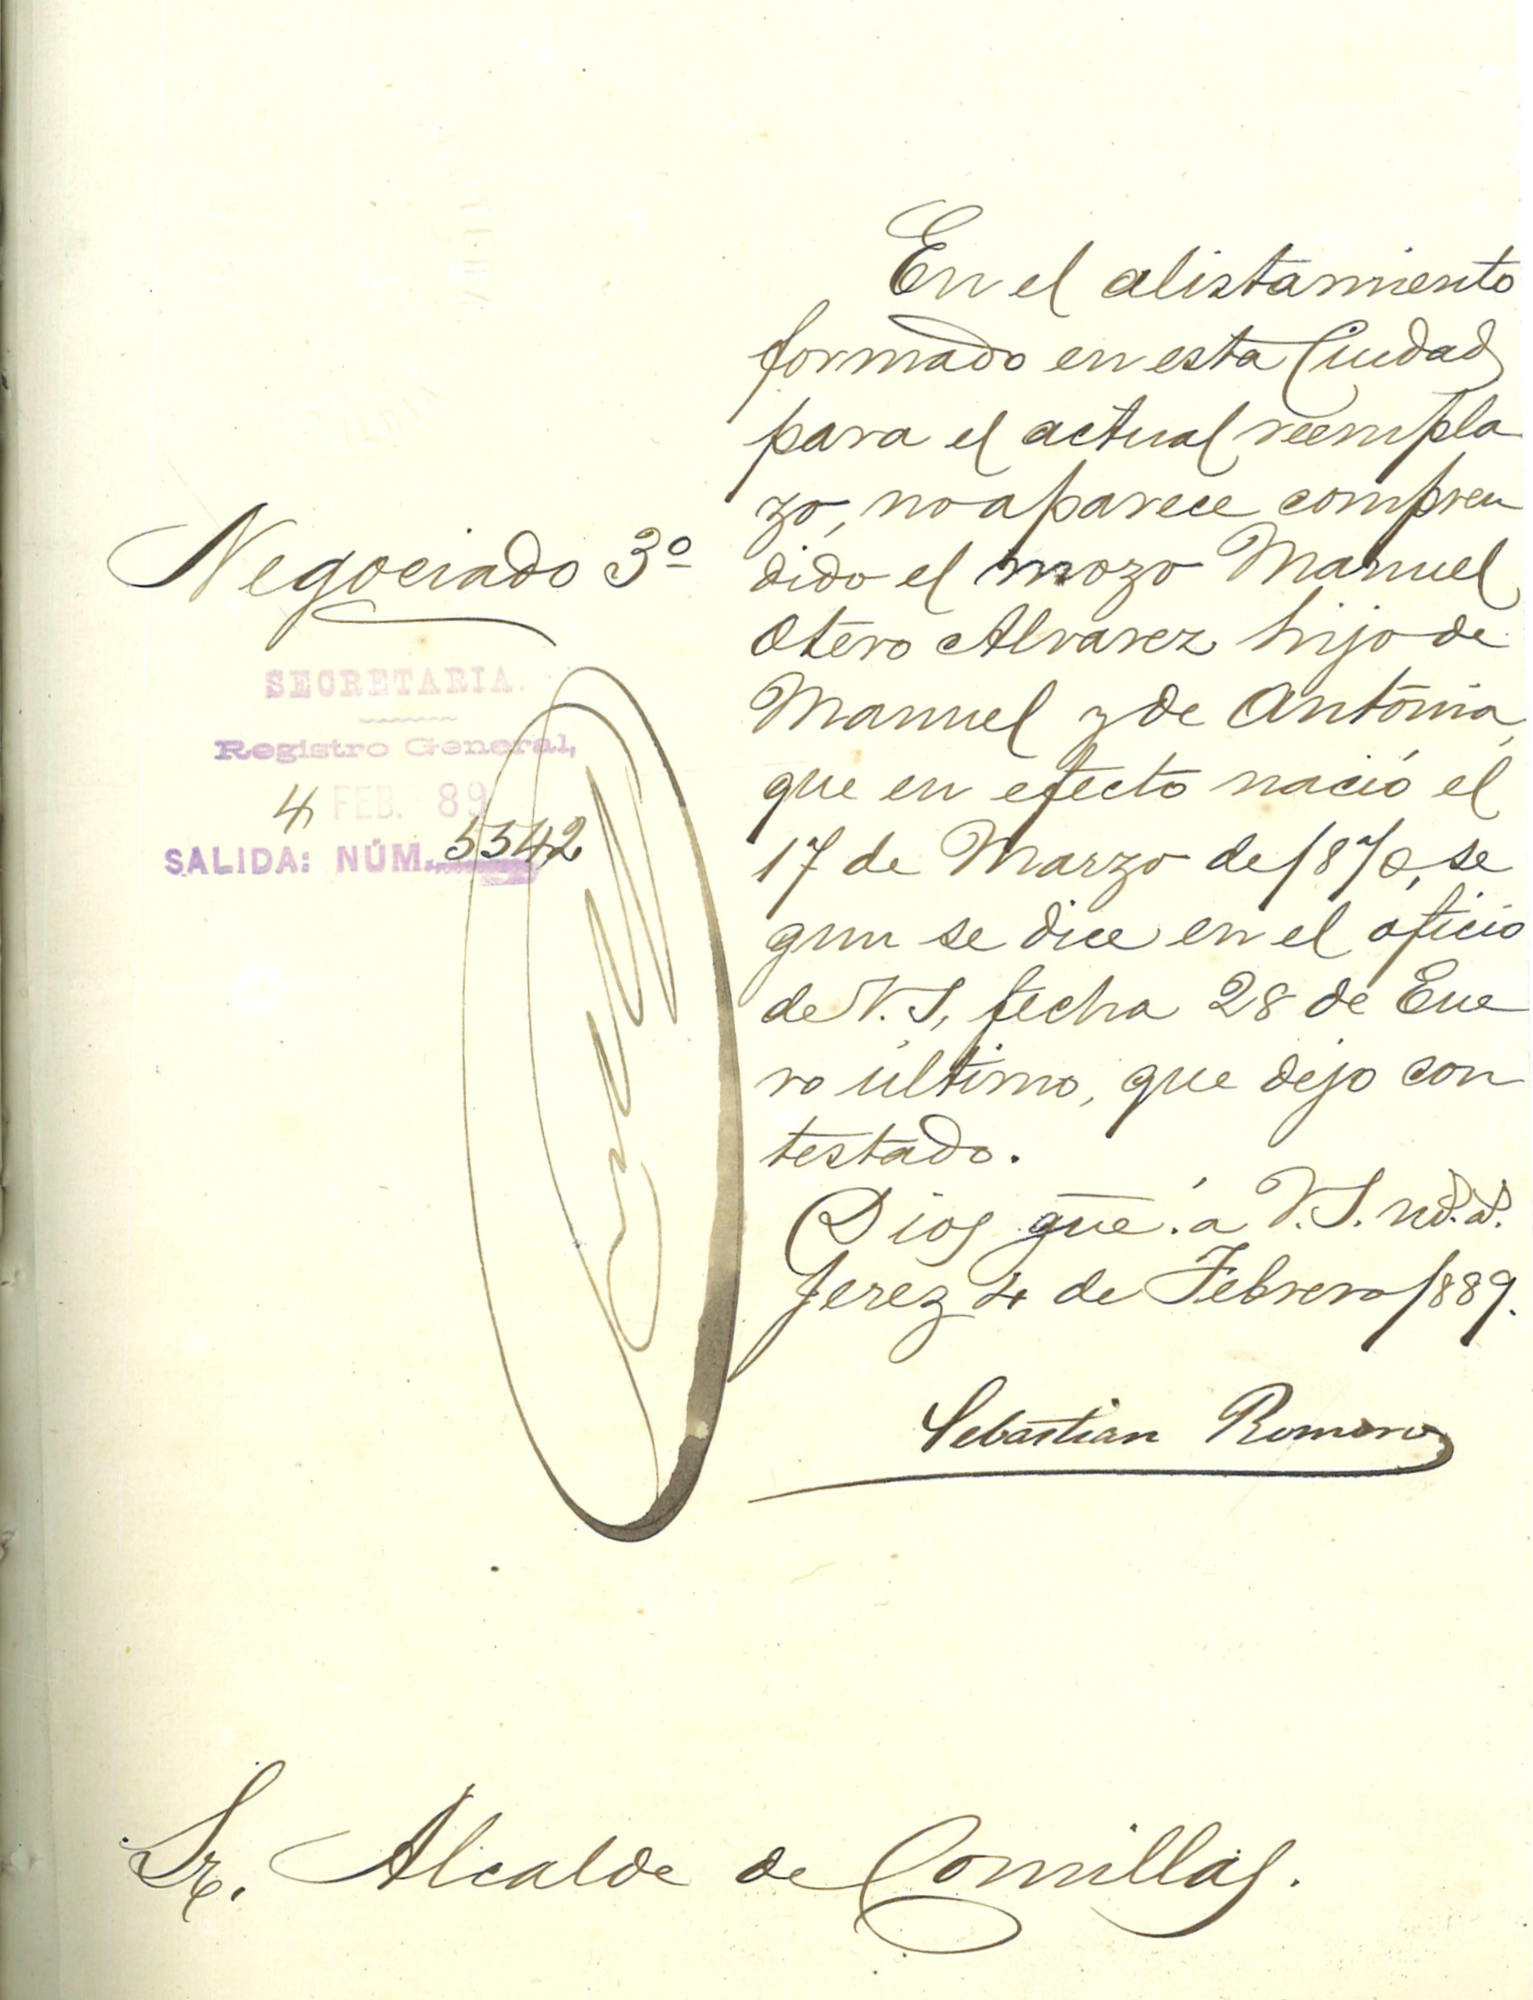 En el alistamiento
formado en esta Ciudad
para el actual reempla
zo, no aparece compren
dido el mozo Manuel
Otero Alvarez hijo de
Manuel y de Antonia,
que en efecto nació el
17 de Marzo de 1870, se
gun se dice en el oficio
de V. S, fecha 28 de Ene
ro último, que dejo con
testado.
Dios gue. á V. S. ms. as.
Jerez 4 de Febrero 1889.
Sebastian Romero
Negociado 3º
SECRETARIA.
Registro General,
4 FEB. 89
SALIDA: NÚM. 5342
Sr. Alcalde de Comillas.